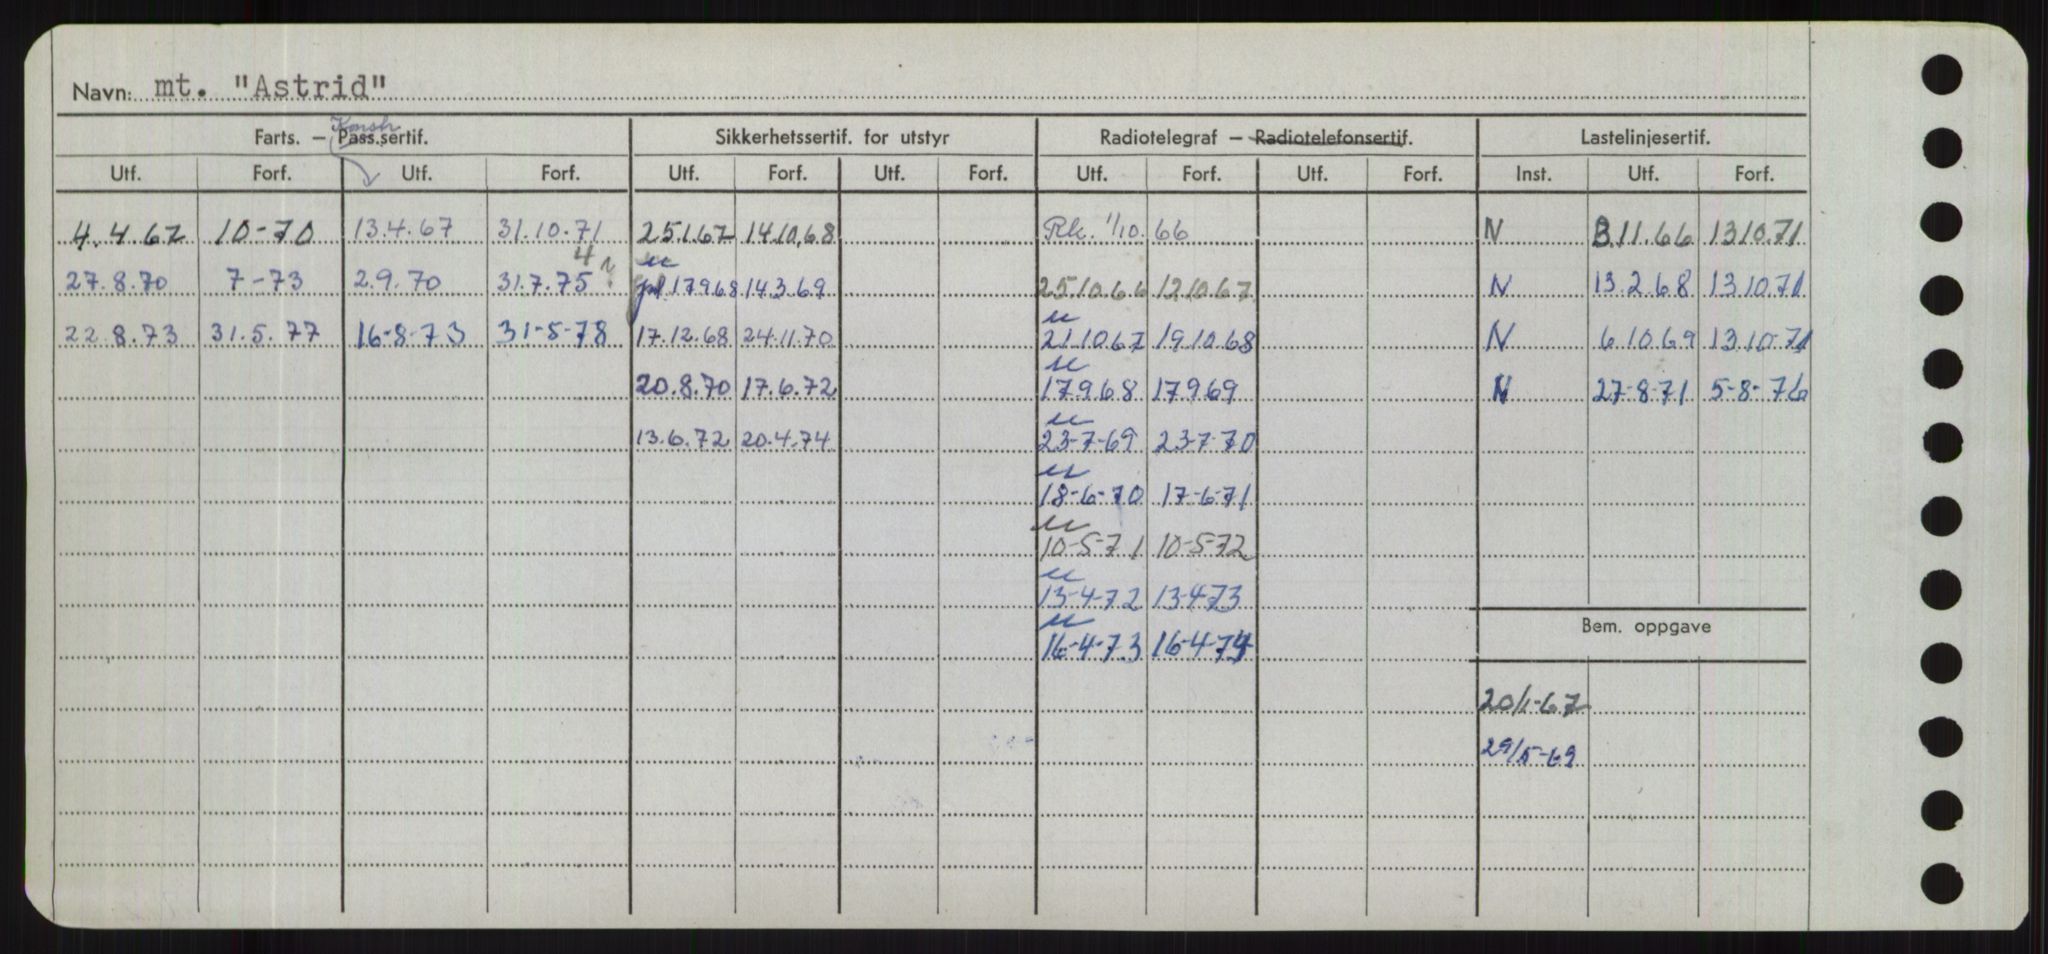 Navn: mt. "Astrid"
Konstr.
Farts. – Pass.sertif. Sikkerhetssertif. for utstyr Radiotelegraf – Radiotelefonsertif. Lastelinjesertif.
Utf. Forf. Utf. Forf. Utf. Forf. Utf. Forf. Utf. Forf. Utf. Forf. Inst. Utf. Forf.
4.4.67 10-70 13.4.67 31.10.71 25.1.67 14.10.68 Rk. 1/10.66 N 3.11.66 13.10.71
27.8.70 7-73 2.9.70 31.7.75 17.9.68 14.3.69 25.10.66 12.10.67 N 13.2.68 13.10.71
22.8.73 31.5.77 16-8-73 31-5-78 17.12.68 24.11.70 21.10.67 19.10.68 N 6.10.69 13.10.71
20.8.70 17.6.72 17.9.68 17.9.69 N 27-8-71 5-8-76
13.6.72 20.4.74 23-7-69 23-7-70
18-6-70 17-6-71
10-5-71 10-5-72
13-4-72 13-4-73
Bem. oppgave
16-4-73 16-4-74
20/1-67
29/5-69